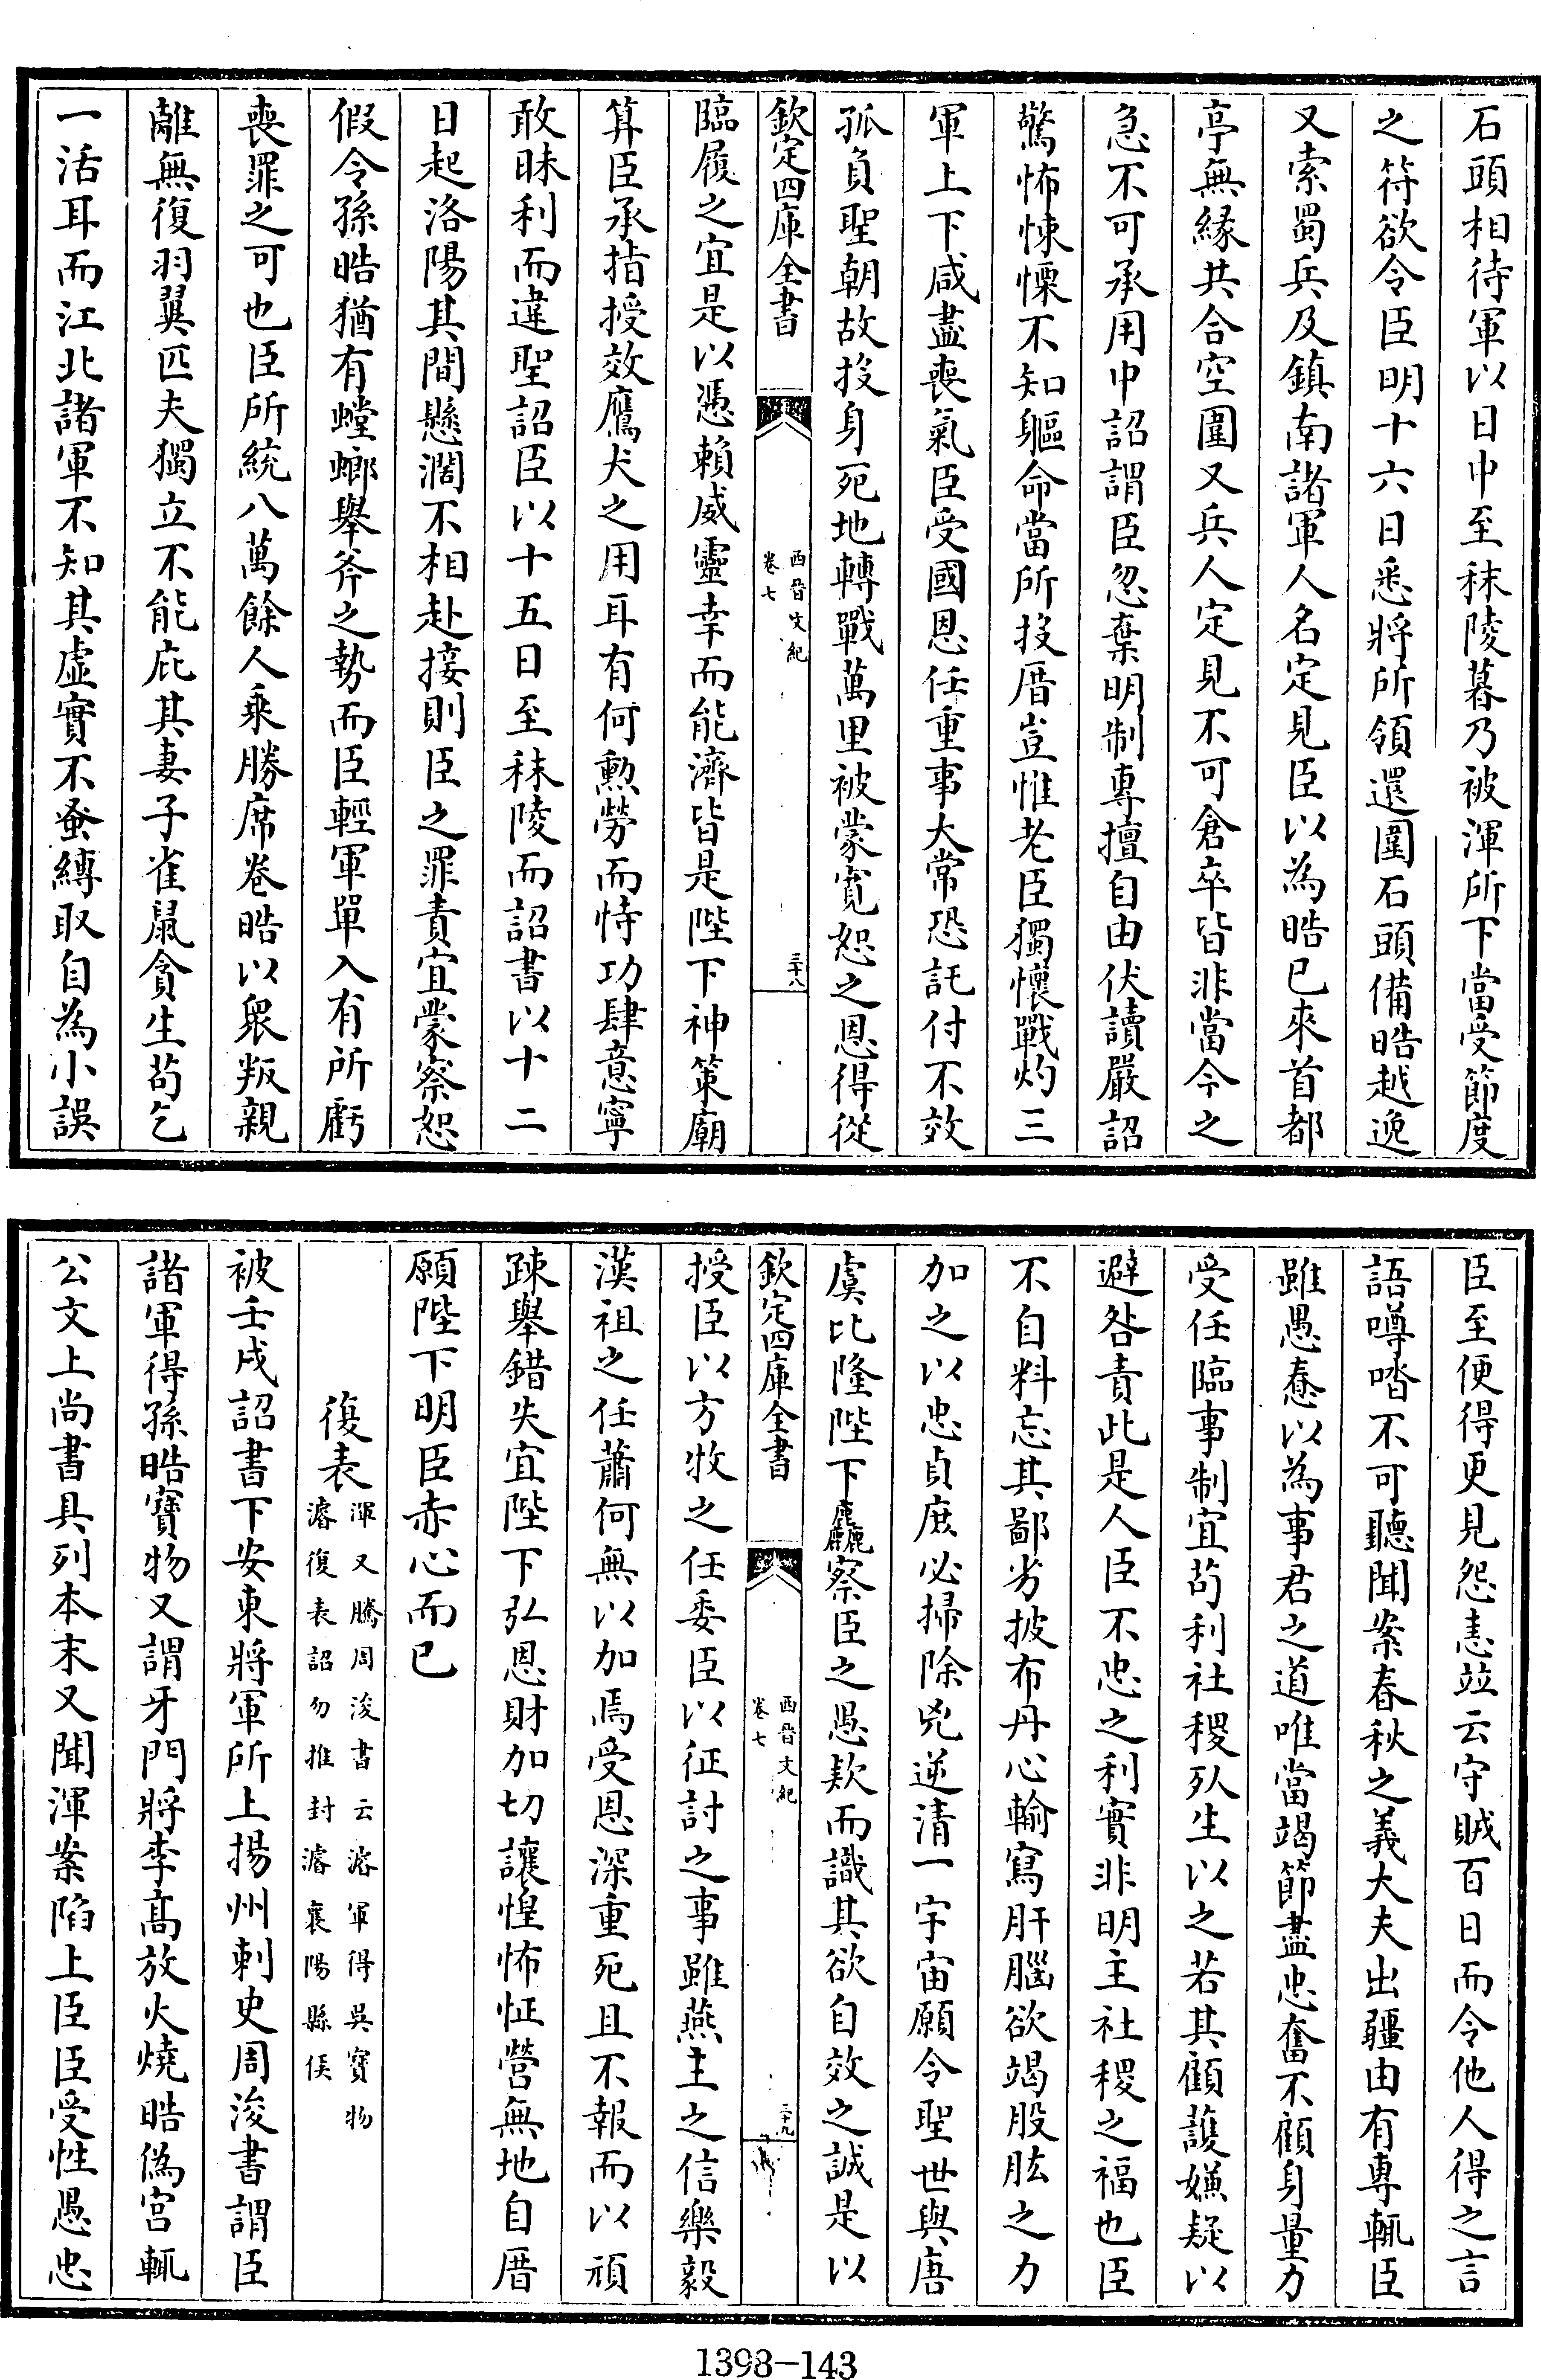 石頭相待軍以日中至秣陵暮乃被渾所下當受節度
之符欲令臣明十六日悉將所領還圍石頭備皓越逸
又索蜀兵及鎮南諸軍人名定見臣以為皓已來首都
亭無緣共合空圍又兵人定見不可倉卒皆非當今之
急不可承用中詔謂臣忽棄明制專擅自由伏讀嚴詔
驚怖悚慄不知軀命當所投厝豈惟老臣獨懷戰灼三
軍上下咸盡喪氣臣受國恩任重事大常恐託付不效
孤負聖朝故投身死地轉戰萬里被蒙寛恕之恩得從
欽定四庫全書
西晉文紀
卷七
三十八
臨履之宜是以憑賴威靈幸而能濟皆是陛下神策廟
算臣承指授效鷹犬之用耳有何勲勞而恃功肆意寧
敢昧利而違聖詔臣以十五日至秣陵而詔書以十二
日起洛陽其間懸濶不相赴接則臣之罪責宜蒙察恕
假令孫皓猶有螳螂舉斧之勢而臣輕軍單入有所虧
喪罪之可也臣所統八萬餘人乘勝席卷皓以衆叛親
離無復羽翼匹夫獨立不能庇其妻子雀鼠貪生茍乞
一活耳而江北諸軍不知其虛實不蚤縛取自為小誤
臣至便得更見怨恚竝云守賊百日而令他人得之言
語噂㳫不可聽聞案春秋之義大夫出疆由有專輒臣
雖愚惷以為事君之道唯當竭節盡忠奮不顧身量力
受任臨事制宜茍利社稷死生以之若其顧護嫌疑以
避咎責此是人臣不忠之利實非明主社稷之福也臣
不自料忘其鄙劣披布丹心輸寫肝腦欲竭股肱之力
加之以忠貞庶必掃除兇逆清一宇宙願令聖世與唐
虞比隆陛下麤察臣之愚欵而識其欲自效之誠是以
欽定四庫全書
西晉文紀
卷七
三十九
授臣以方牧之任委臣以征討之事雖燕主之信樂毅
漢祖之任蕭何無以加焉受恩深重死且不報而以頑
疎舉錯失宜陛下弘恩財加切讓惶怖怔營無地自厝
願陛下明臣赤心而已
復表
渾又騰周浚書云濬軍得吳寳物
濬復表詔勿推封濬襄陽縣侯
被壬戌詔書下安東將軍所上揚州刺史周浚書謂臣
諸軍得孫皓寳物又謂牙門將李高放火燒皓偽宫輒
公文上尚書具列本末又聞渾案陷上臣臣受性愚忠
1398-143